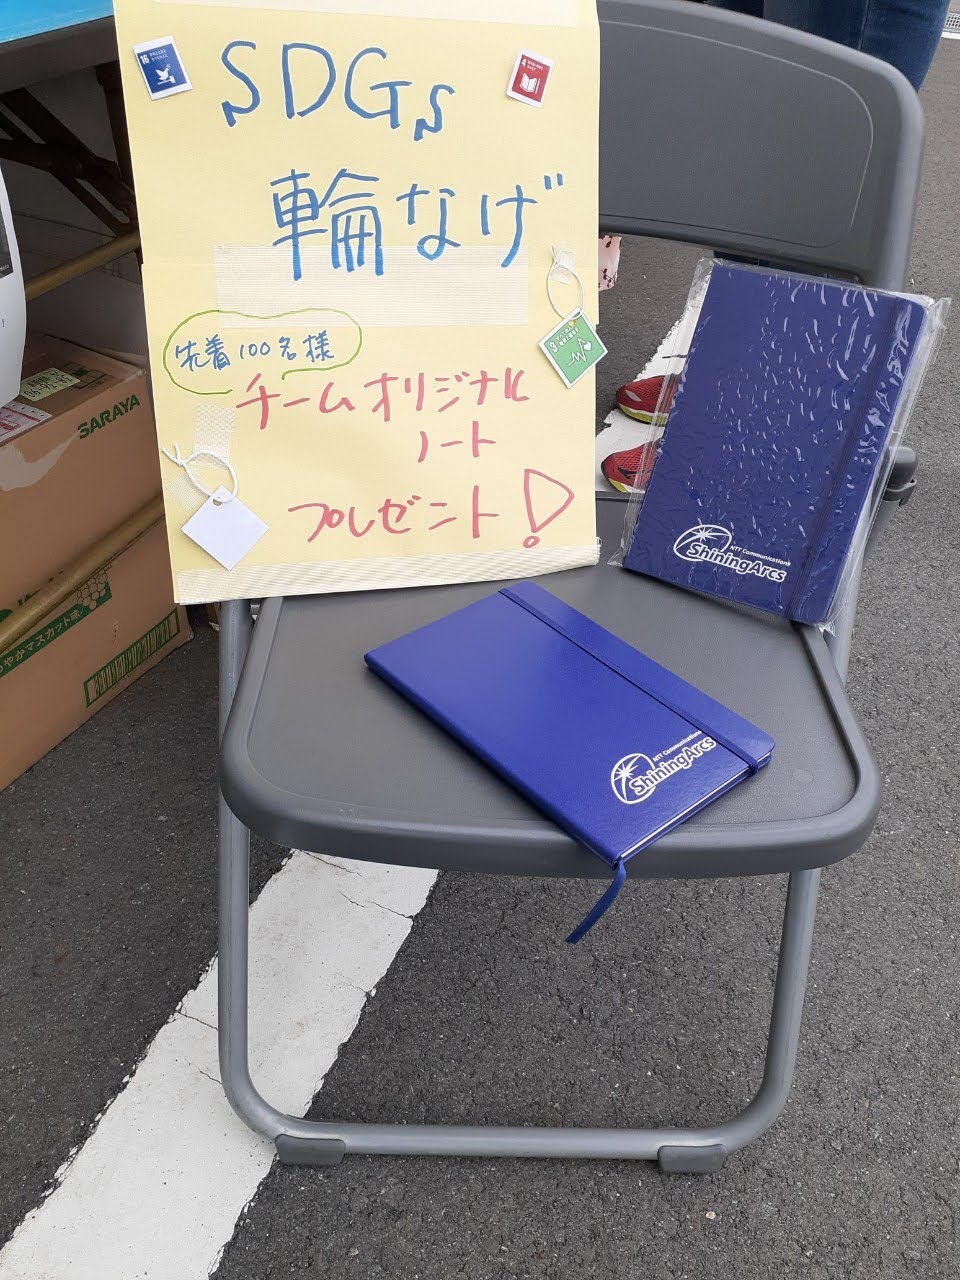 SDGs
輪なげ
先着100名様
チームオリジナル
ノート
プレゼント!
16
4
3
SARAYA
NTT Communications
ShiningArcs
NTT Communications
ShiningArcs
やかマスカット味